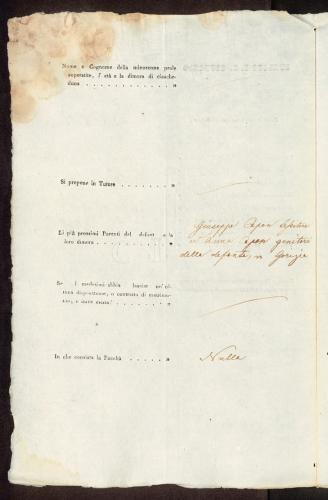 Nome e Cognome della minorenne prole
superstite, l'età e la dimora di ciasche-
duno . . . . . . . . . . . . . . . . „
Si propone in Tutore . . . . . . . . . „
Li più prossimi Parenti del defont e la
loro dimora . . . . . . . . . . . . . „
Giuseppe
ed Anna genitori
della defonta, in Gorizia
Se i medesimi abbia lasciato un'ul-
tima disposizione, o contratto di matrimo-
nio, e dove esista? . . . . . . . . . . „
In che consista la Facoltà . . . . . „
Nulla